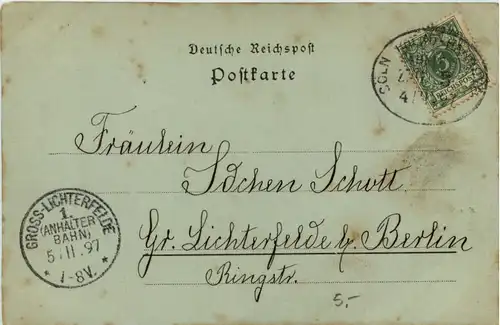 Deutsche Reichspost
Postkarte
CÖLN
5
REICHSPOST
Fräulein
Schott
Gr. Lichterfelde b. Berlin
Ringstr.
GROSS-LICHTERFELDE
1.
(ANHALTER
BAHN)
5/11.97
* 7-8V. *
5.-